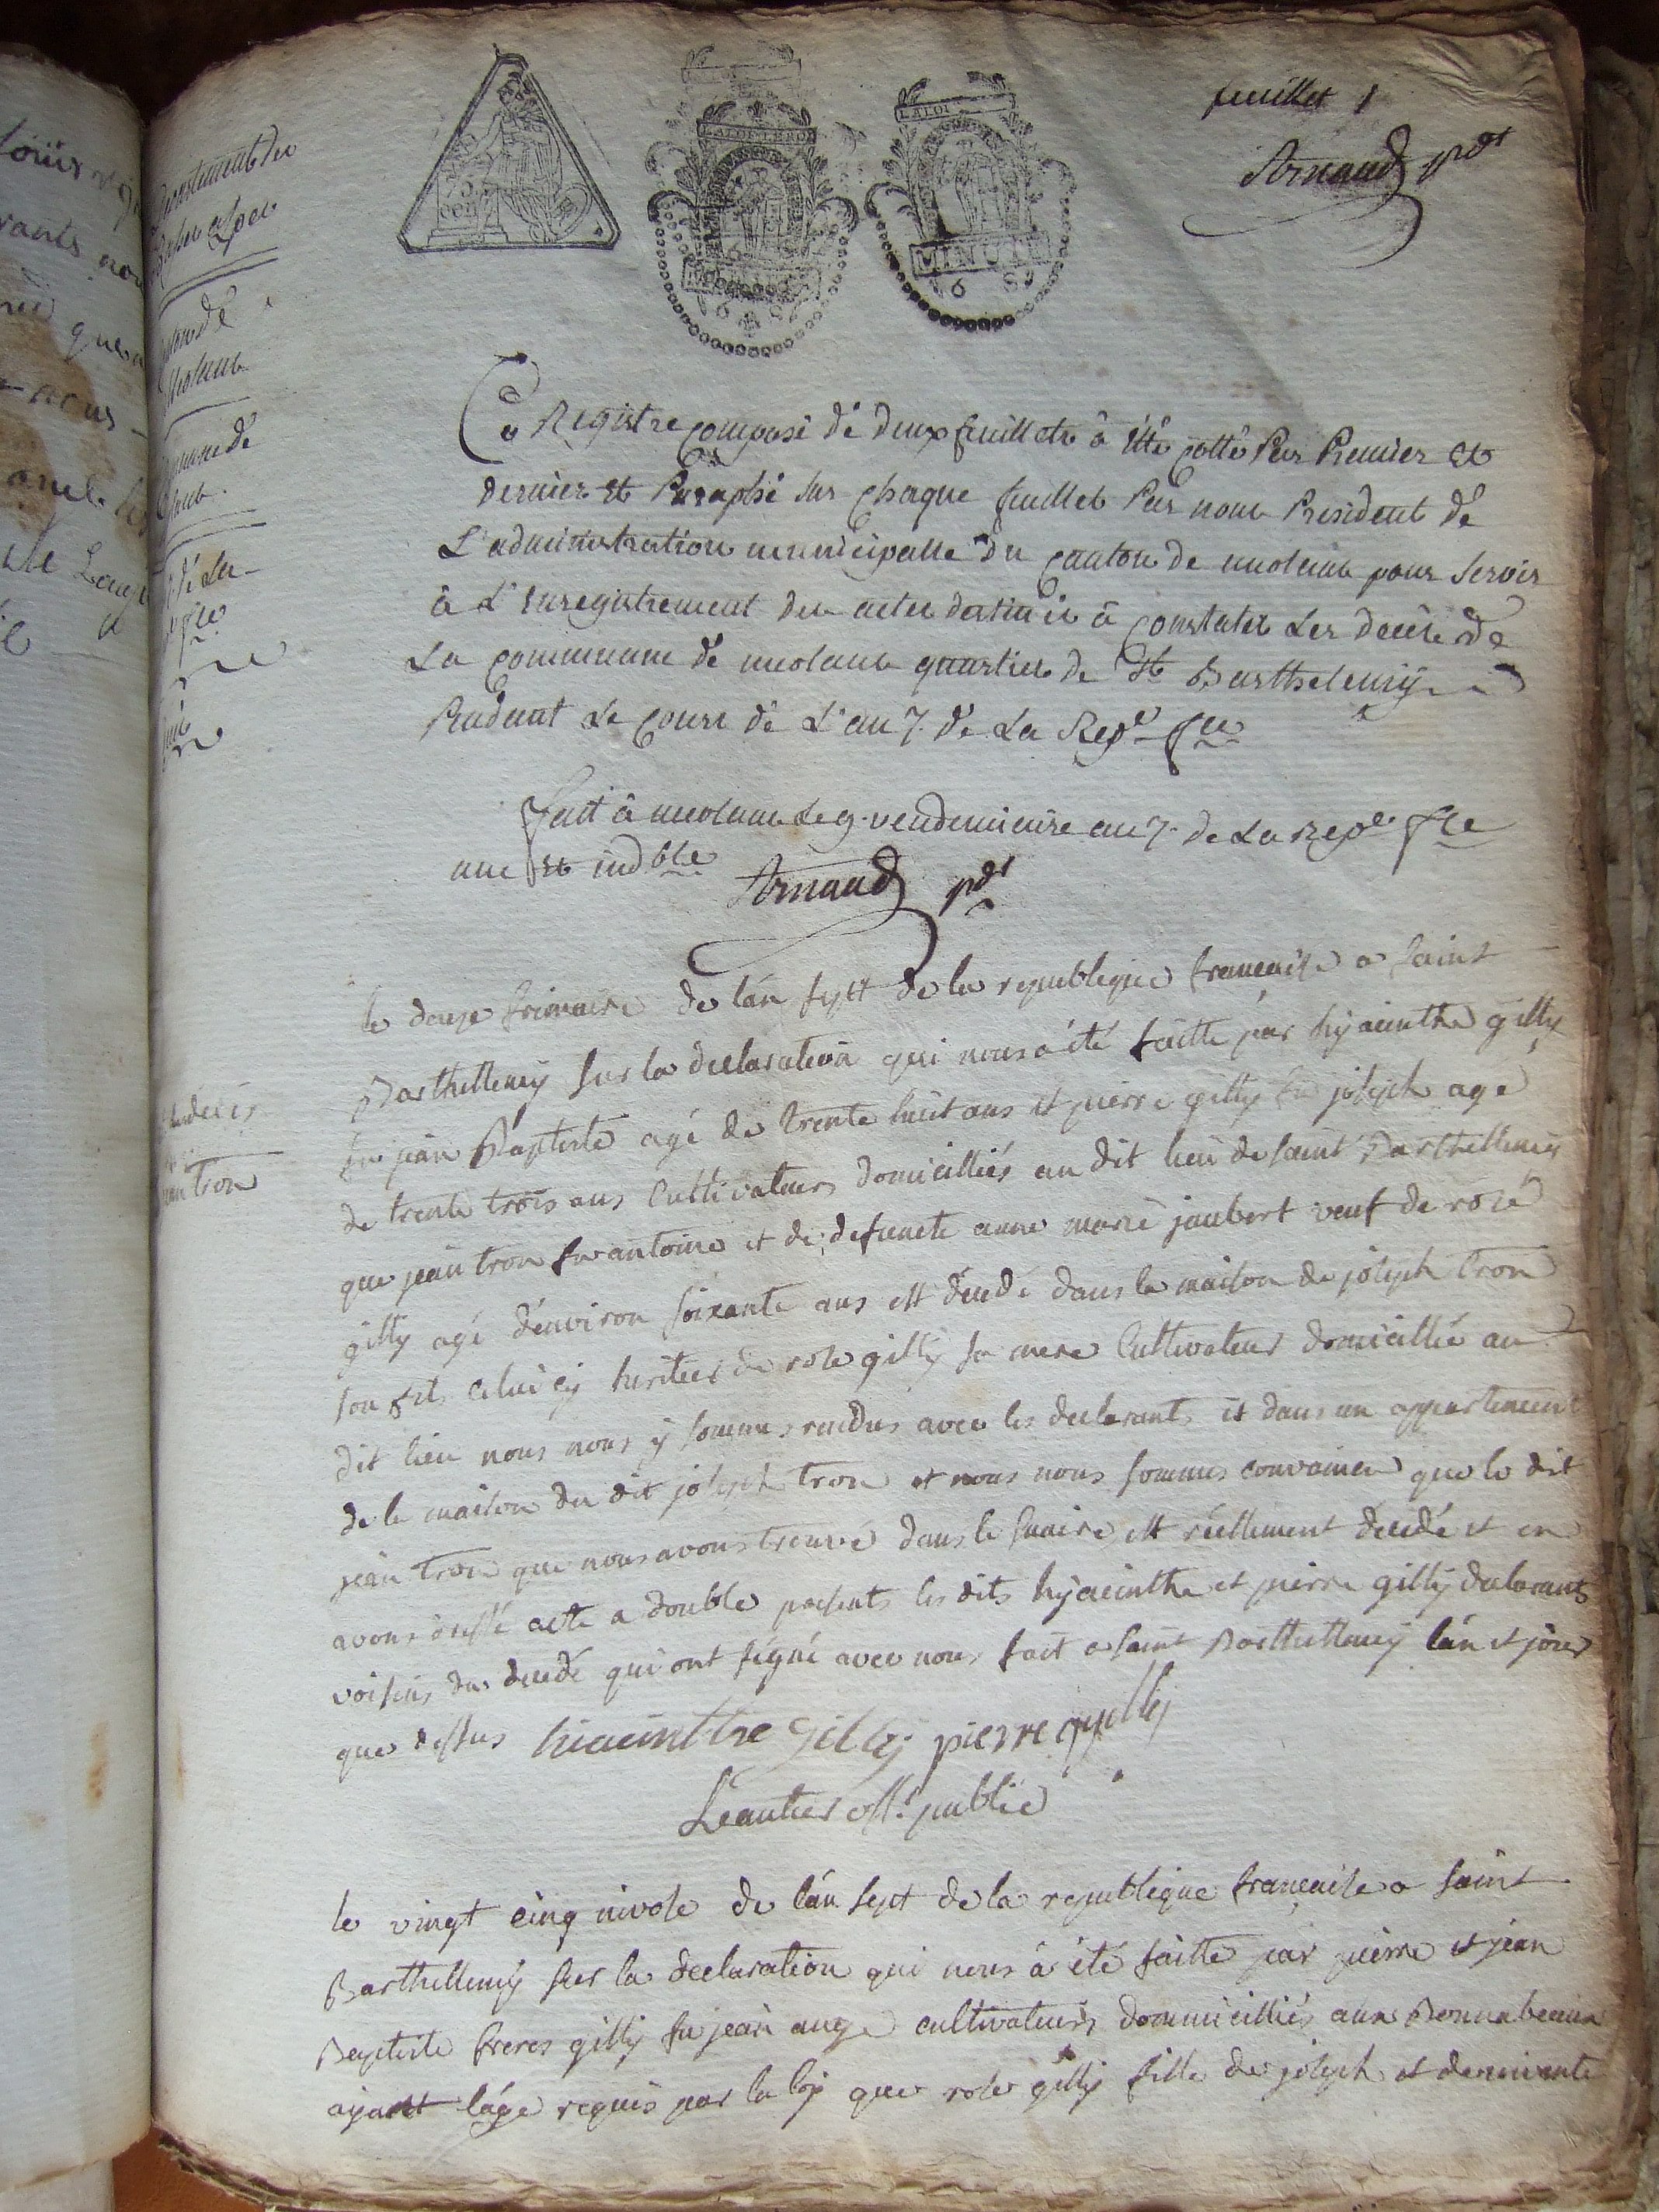 feuillet 1
Arnaud pdt
LA LOI
MINUTE
Ce Registre composé de deux feuillets à été cotté Par Premier et
dernier et Paraphé sur chaque feuillet Par nous President de
L'administration municipalle du canton de meolans pour servir
à L'enregistrement des actes destinés à constater Les decés de
La commune de meolans quartier de St Barthelemÿ
Pendant Le cours de L'an 7 de La Repe fse
fait à meolans Le 9 vendemiaire an 7 de La Repe fse
une et indble
Arnaud pdt
le douze frimaire de l'an sept de la republique française a saint
Barthellemÿ sur la declaration qui nous a été faitte par hÿacinthe gillÿ
fu jean Baptiste agé de trente huit ans et pierre gillÿ fu joseph agé
de trente trois ans Cultivateurs domicilliés au dit lieu de saint Barthellemÿ
que jean tron fu antoine et de defuncte anne marie jaubert veuf de rose
gillÿ agé d'environ soixante ans est décédé dans la maison de joseph tron
son fils celui cÿ heritier de rose gillÿ sa mere Cultivateur domicillié au
dit lieu nous nous ÿ sommes rendus avec les declarants et dans un appartement
de la maison du dit joseph tron et nous nous sommes convaincu que le dit
jean tron que nous avons trouvé dans le suaire est réellement décédé et en
avons dressé acte a double presents les dits hÿacinthe et pierre gillÿ declarants
voisins du décédé qui ont signé avec nous fait a saint Barthellemÿ l'an et jour
que dessus hiacintthe Gillÿ pierre gyllÿ
Leautier offr public
decés
jean tron
le vingt cinq nivose de l'an sept de la republique française a saint
Barthellemÿ sur la declaration qui nous à été faitte par pierre et jean
Baptiste freres gillÿ fu jean ange cultivateurs dommicilliés aux
ayant l'áge requis par la loÿ que rose gillÿ fille de joseph et